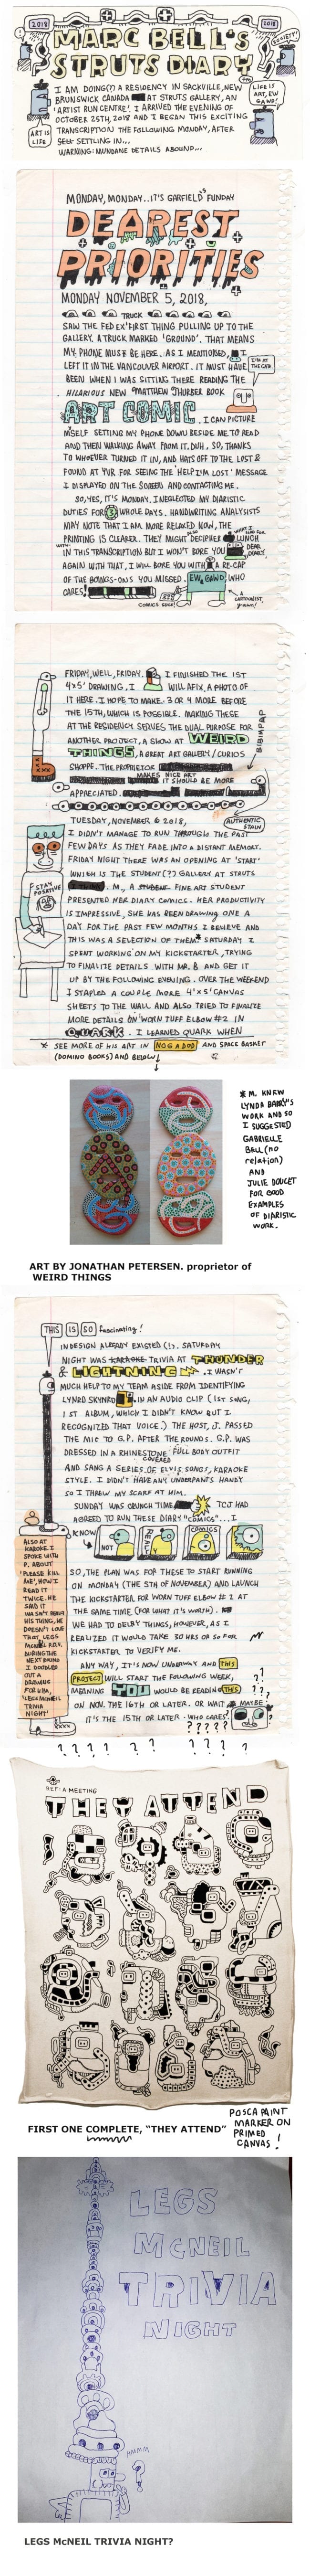 2018
2018
SOCIETY!
MARC BELL'S
STRUTS DIARY
I AM DOING(?) A RESIDENCY IN SACKVILLE, NEW
BRUNSWICK CANADA AT STRUTS GALLERY, AN
'ARTIST RUN CENTRE'. I ARRIVED THE EVENING OF
OCTOBER 25TH, 2018 AND I BEGAN THIS EXCITING
TRANSCRIPTION THE FOLLOWING MONDAY, AFTER
SETTLING IN...
WARNING: MUNDANE DETAILS ABOUND...
ART IS
LIFE
LIFE IS
ART, EW
GAWD!
MONDAY, MONDAY...IT'S GARFIELD'S FUNDAY
DEAREST
PRIORITIES
MONDAY NOVEMBER 5, 2018,
TRUCK
SAW THE FED EX FIRST THING PULLING UP TO THE
GALLERY. A TRUCK MARKED 'GROUND'. THAT MEANS
MY PHONE MUST BE HERE. AS I MENTIONED, I
LEFT IT IN THE VANCOUVER AIRPORT. IT MUST HAVE
BEEN WHEN I WAS SITTING THERE READING THE
HILARIOUS NEW MATTHEW THURBER BOOK
ART COMIC. I CAN PICTURE
MYSELF SETTING MY PHONE DOWN BESIDE ME TO READ
AND THEN WALKING AWAY FROM IT. DUH. SO, THANKS
TO WHOEVER TURNED IT IN, AND HATS OFF TO THE LOST &
FOUND AT YVR FOR SEEING THE 'HELP I'M LOST' MESSAGE
I DISPLAYED ON THE SCREEN AND CONTACTING ME.
SO, YES, IT'S MONDAY. I NEGLECTED MY DIARISTIC
DUTIES FOR 3 WHOLE DAYS. HANDWRITING ANALYSTS
MAY NOTE THAT I AM MORE RELAXED NOW, THE
PRINTING IS CLEARER. THEY MIGHT ALSO DECIPHER WHAT I HAD FOR LUNCH
IN THIS TRANSCRIPTION BUT I WON'T BORE YOU DEAR
AGAIN WITH THAT, I WILL BORE YOU WITH A RE-CAP
OF THE GOINGS-ONS YOU MISSED. WHO
CARES!
EW, GAWD
COMICS SUCK!
A CARTOONIST,
FRIDAY, WELL, FRIDAY. I FINISHED THE 1ST
4X5' DRAWING. I WILL AFIX A PHOTO OF
IT HERE. I HOPE TO MAKE 3 OR 4 MORE BEFORE
THE 15TH, WHICH IS POSSIBLE. MAKING THESE
AT THE RESIDENCY SERVES THE DUAL PURPOSE FOR
ANOTHER PROJECT, A SHOW AT WEIRD
THINGS, A BRELY ART GALLERY/CURIOS
SHOPPE. THE PROPRIETOR
MAKES NICE ART
IT SHOULD BE MORE
APPRECIATED.
BIBIMPAP
AUTHENTIC
STAIN
TUESDAY, NOVEMBER 6 2018,
I DIDN'T MANAGE TO RUN THROUGH THE PAST
FEW DAYS AS THEY FADE INTO A DISTANT MEMORY.
FRIDAY NIGHT THERE WAS AN OPENING AT 'START'
WHICH IS THE STUDENT(?) GALLERY AT STRUTS
M., A STUDENT FINE ART STUDENT
PRESENTED HER DIARY COMICS. HER PRODUCTIVITY
IS IMPRESSIVE, SHE HAS BEEN DRAWING ONE A
DAY FOR THE PAST FEW MONTHS I BELIEVE AND
THIS WAS A SELECTION OF THEM* SATURDAY I
SPENT WORKING ON MY KICKSTARTER, TRYING
TO FINALIZE DETAILS WITH MR. B AND GET IT
UP BY THE FOLLOWING EVENING. OVER THE WEEKEND
I STAPLED A COUPLE MORE 4'x5' CANVAS
SHEETS TO THE WALL AND ALSO TRIED TO FINALIZE
MORE DETAILS ON 'WORN TUFF ELBOW #2 IN
QUARK. I LEARNED QUARK WHEN
STAY
POSITIVE
* SEE MORE OF HIS ART IN NOG A DOD AND SPACE BASKET
(DOMINO BOOKS) AND BELOW
* M. KNEW
LYNDA BARRY'S
WORK AND SO
I SUGGESTED
GABRIELLE
BELL (NO
relation)
AND
JULIE DOUCET
FOR GOOD
EXAMPLES
OF DIARISTIC
WORK.
ART BY JONATHAN PETERSEN. proprietor of
WEIRD THINGS
THIS IS SO fascinating!
INDESIGN ALREADY EXISTED (!). SATURDAY
NIGHT WAS KARAOKE TRIVIA AT THUNDER
& LIGHTNING. I WASN'T
MUCH HELP TO MY TEAM ASIDE FROM IDENTIFYING
LYNRD SKYNRD IN AN AUDIO CLIP (1ST SONG,
1ST ALBUM, WHICH I DIDN'T KNOW BUT I
RECOGNIZED THAT VOICE.) THE HOST, J. PASSED
THE MIC TO G.P. AFTER THE ROUNDS. G.P. WAS
DRESSED IN A RHINESTONE COVERED FULL BODY OUTFIT
AND SANG A SERIES OF ELVIS SONGS, KARAOKE
STYLE. I DIDN'T HAVE ANY UNDERPANTS HANDY
SO I THREW MY SCARF AT HIM.
SUNDAY WAS CRUNCH TIME TCJ HAD
AGREED TO RUN THESE DIARY "COMICS"... I
KNOW
NOT
REALLY
COMICS
SO, THE PLAN WAS FOR THESE TO START RUNNING
ON MONDAY (THE 5TH OF NOVEMBER) AND LAUNCH
THE KICKSTARTER FOR WORN TUFF ELBOW #2 AT
THE SAME TIME (FOR WHAT IT'S WORTH).
WE HAD TO DELAY THINGS, HOWEVER, AS I
REALIZED IT WOULD TAKE 30 HRS OR SO FOR
KICKSTARTER TO VERIFY ME.
ANY WAY, IT IS NOW UNDERWAY AND THIS
PROJECT WILL START THE FOLLOWING WEEK,
MEANING YOU WOULD BE READING THIS
ON NOV. THE 16TH OR LATER. OR WAIT, MAYBE
IT'S THE 15TH OR LATER. WHO CARES?
ALSO AT
KAROKE I
SPOKE WITH
P. ABOUT
'PLEASE KILL
ME', HOW I
READ IT
TWICE. HE
SAID IT
WASN'T REALLY
HIS THING, HE
DOESN'T LOVE
THAT LEGS
McNEIL P.O.V.
DURING THE
NEXT ROUND
I DOODLED
OUT A
DRAWING
FOR HIM,
'LEGS McNEIL
TRIVIA
NIGHT'
? ? ? ? ? ? ? ? ? ?
REF: A MEETING
THEY ATTEND
FIRST ONE COMPLETE, "THEY ATTEND"
POSCA PAINT
MARKER ON
PRIMED
CANVAS!
LEGS
McNEIL
TRIVIA
NIGHT
HMMM
?
LEGS McNEIL TRIVIA NIGHT?